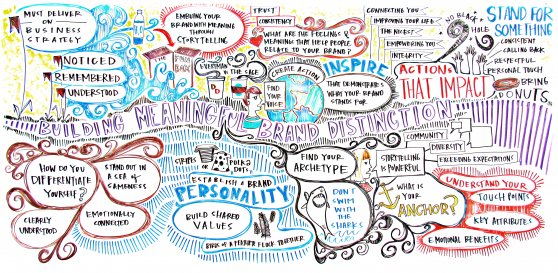 MUST DELIVER
ON
BUSINESS
STRATEGY
NOTICED
REMEMBERED
UNDERSTOOD
IMBUING YOUR
BRAND WITH MEANING
THROUGH
STORYTELLING
THE
BRAND
EVERYTHING
IS THE SAME
TRUST
CONSISTENCY
WHAT ARE THE FEELINGS &
MEANINGS THAT HELP PEOPLE
RELATE TO YOUR BRAND?
CREATE ACTION
FIND
YOUR
VOICE
INSPIRE
THAT DEMONSTRATES
WHAT YOUR BRAND
STANDS FOR
CONNECTING YOU
IMPROVING YOUR LIFE
THE NICEST
EMPOWERING YOU
INTEGRITY
NO BLACK
HOLE
STAND FOR
SOMETHING
CONSISTENT
CALLING BACK
RESPECTFUL
PERSONAL TOUCH
BRING
DONUTS
ACTIONS
THAT IMPACT
BUILDING MEANINGFUL BRAND DISTINCTION
COMMUNITY
DIVERSITY
EXCEEDING EXPECTATIONS
HOW DO YOU
DIFFERENTIATE
YOURSELF?
STAND OUT IN
A SEA OF
SAMENESS
CLEARLY
UNDERSTOOD
EMOTIONALLY
CONNECTED
STRIPES
OR
POLKA
DOTS
ESTABLISH A BRAND
PERSONALITY
BUILD SHARED
VALUES
BIRDS OF A FEATHER FLOCK TOGETHER
FIND YOUR
ARCHETYPE
DON'T
SWIM
WITH
THE
SHARKS
STORYTELLING
IS POWERFUL
WHAT IS
YOUR
ANCHOR?
UNDERSTAND YOUR
TOUCH POINTS
KEY ATTRIBUTES
EMOTIONAL BENEFITS